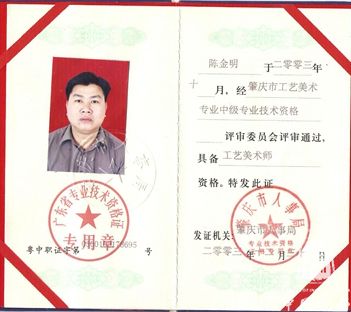 广东省专业技术资格证
专用章
粤中职证字第 号
陈金明 于 二〇〇三 年
十 月，经 肇庆市工艺美术
专业中级专业技术资格
评审委员会评审通过，
具备 工艺美术师
资格。特发此证
肇庆市人事局
专业技术资格
发证机关：肇庆市人事局